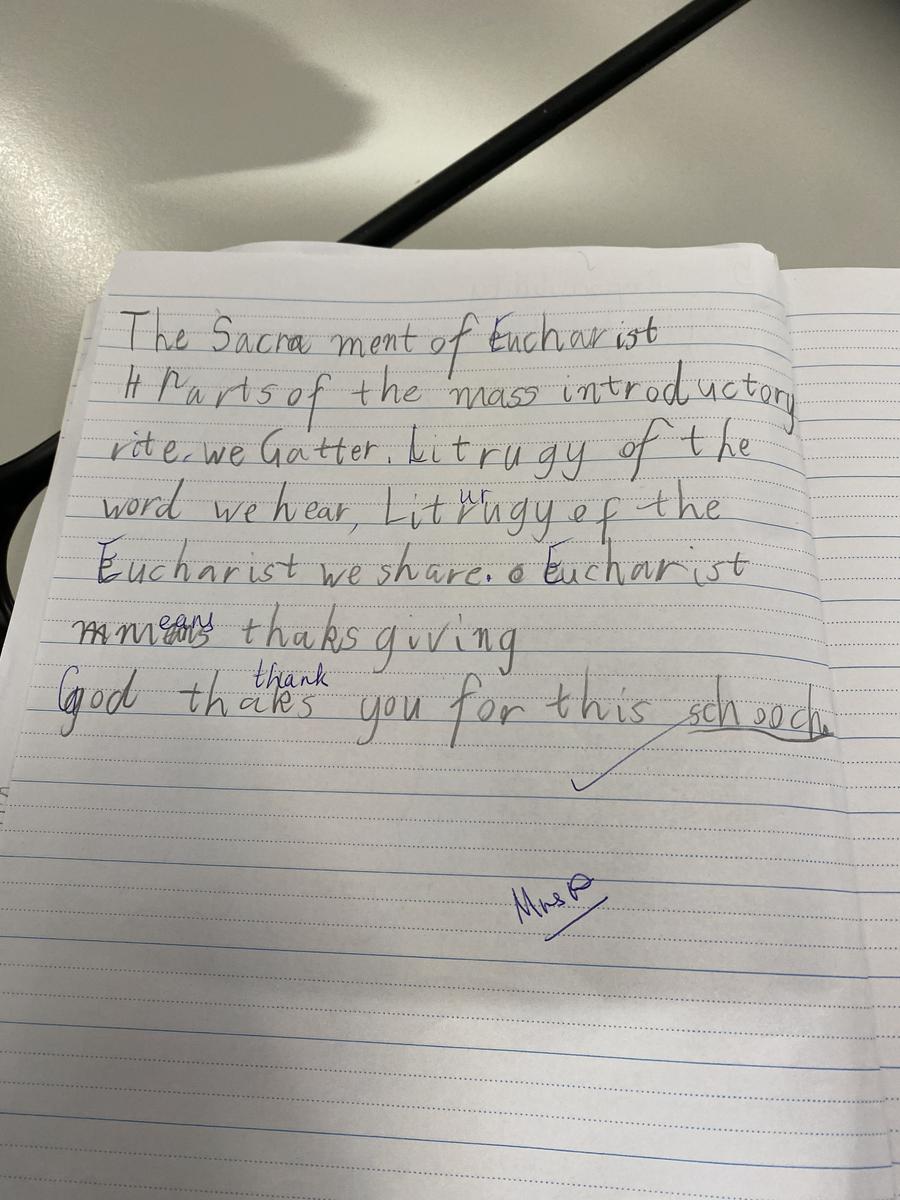 The Sacra ment of Eucharist
4 Parts of the mass introductory
rite. we Gatter. Litrugy of the
word we hear, Liturugy of the
Eucharist we share. Eucharist
means thaks giving
thank
God thaks you for this schooch.
Mrs P